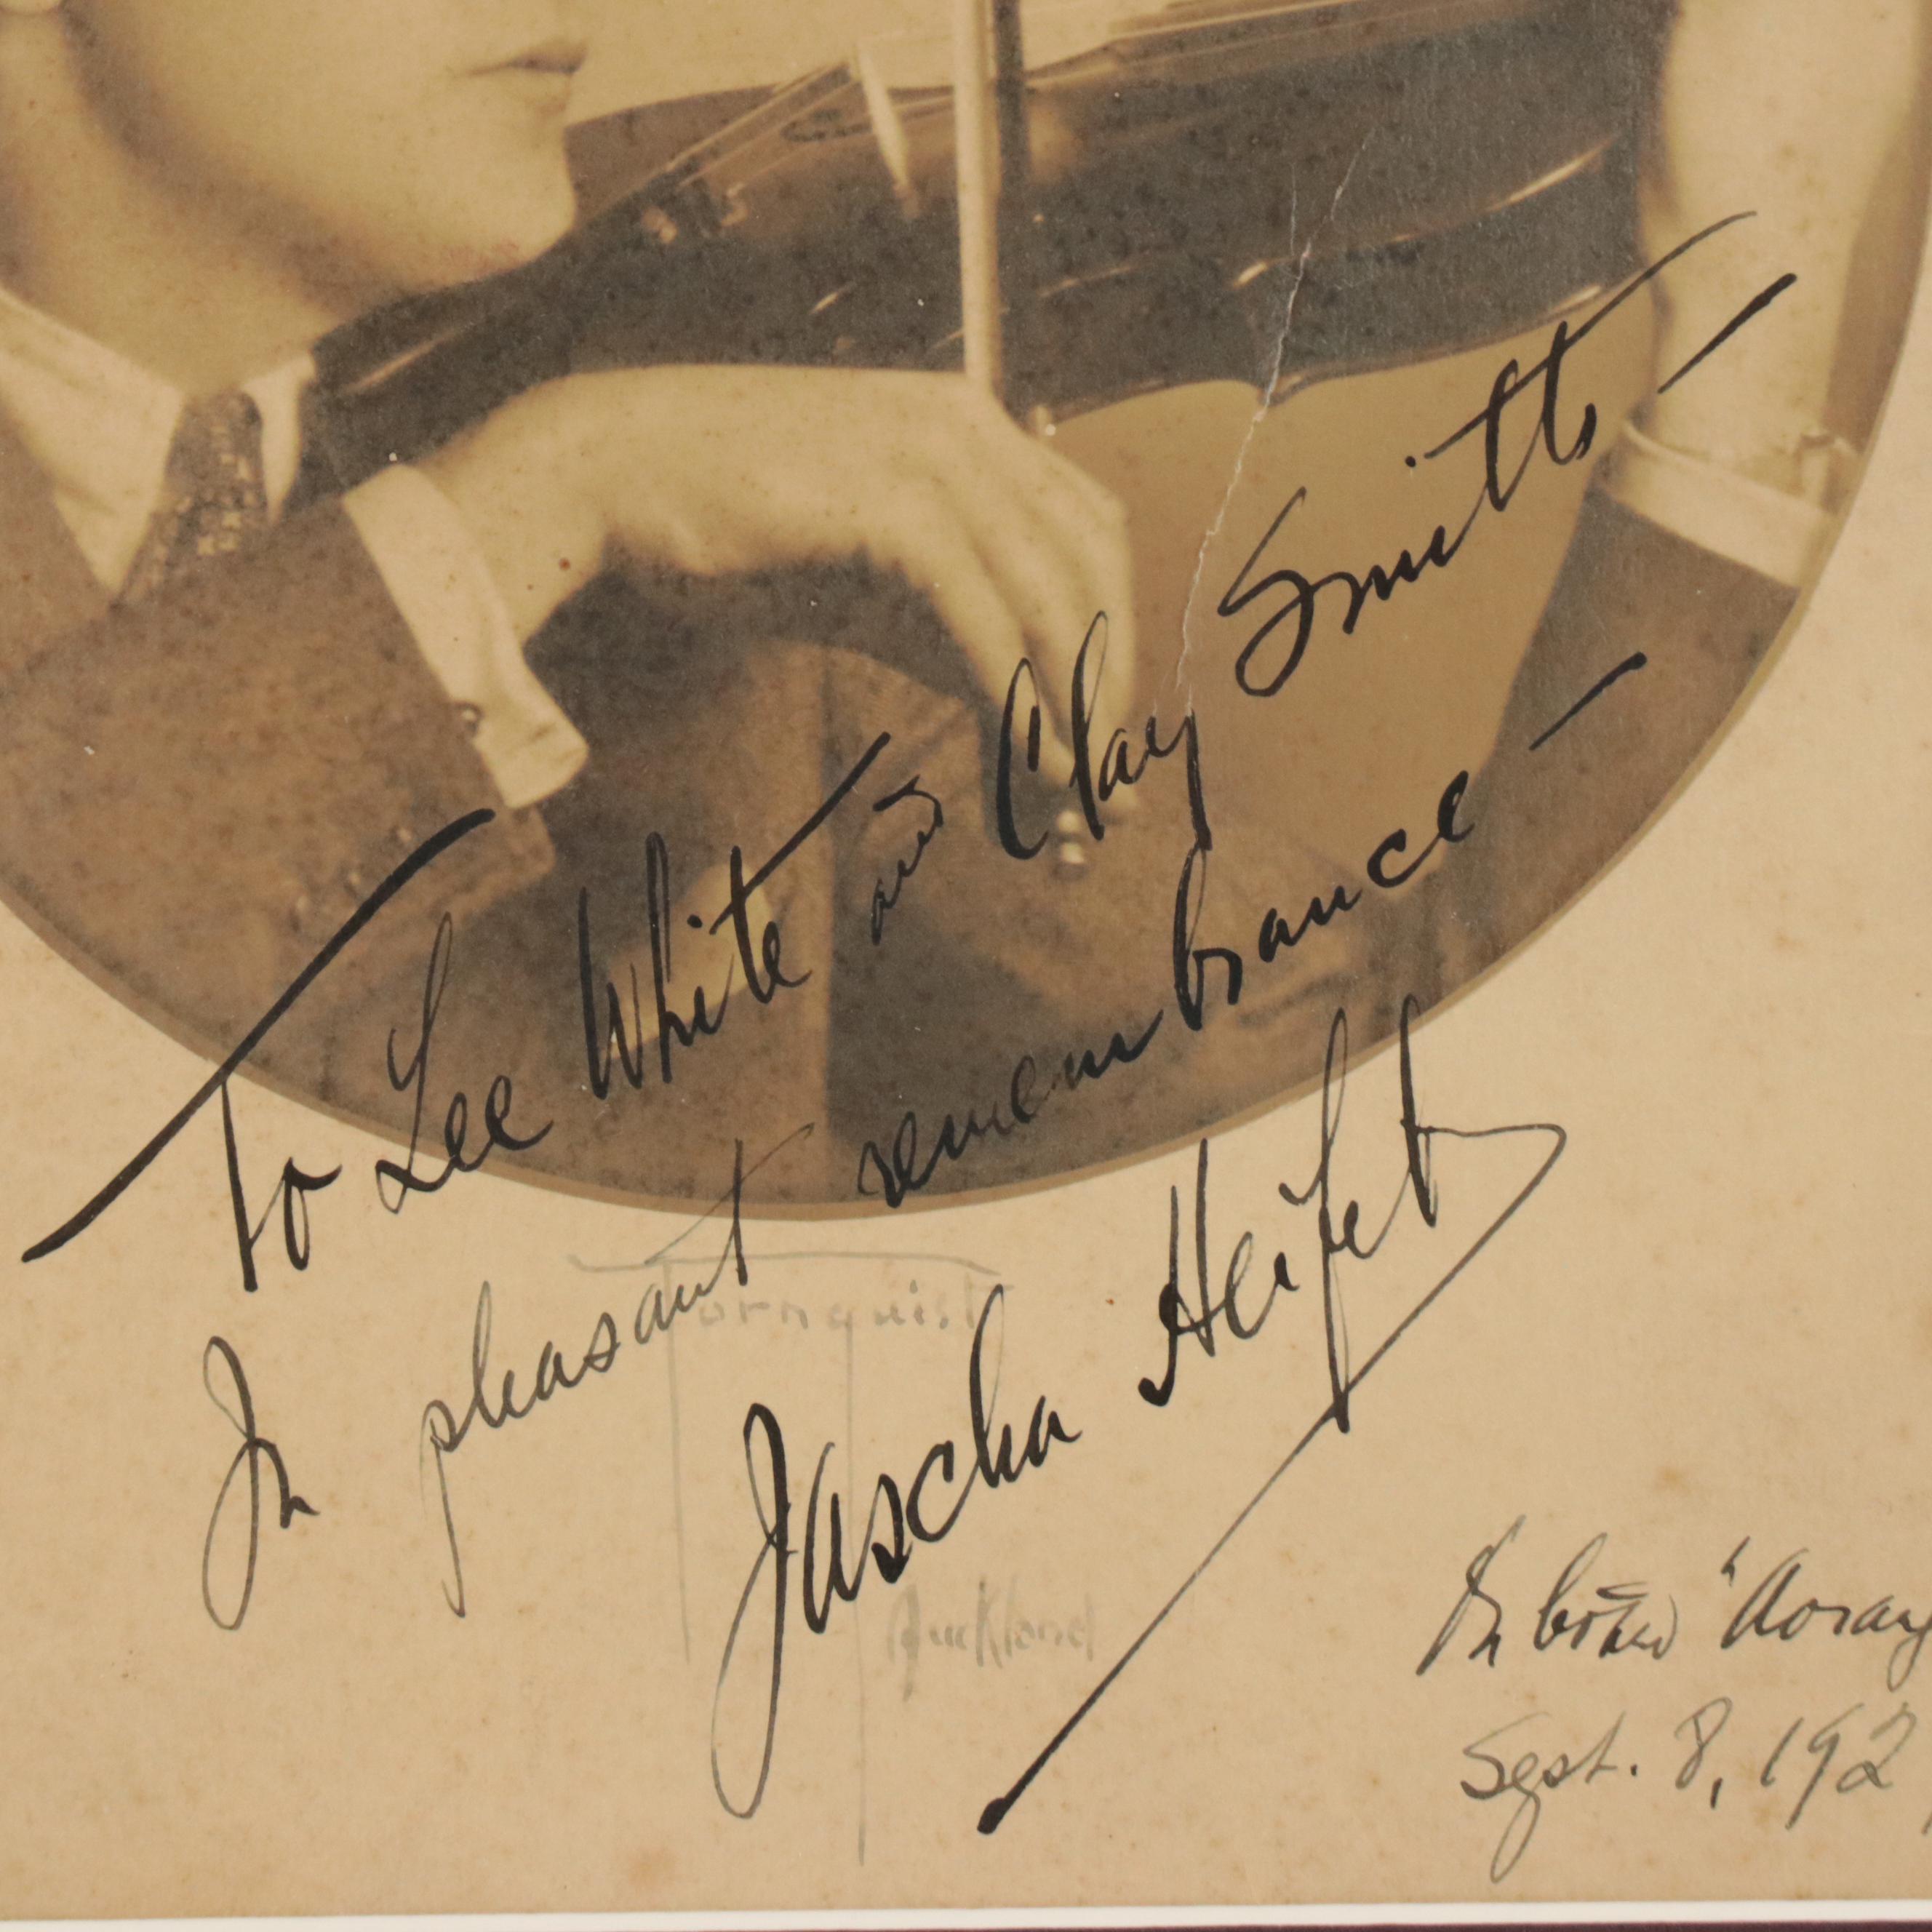 To Lee White and Clay Smith —
In pleasant remembrance —
Jascha Heifetz
Tornquist
Auckland
On board "Aorang
Sept. 8, 192